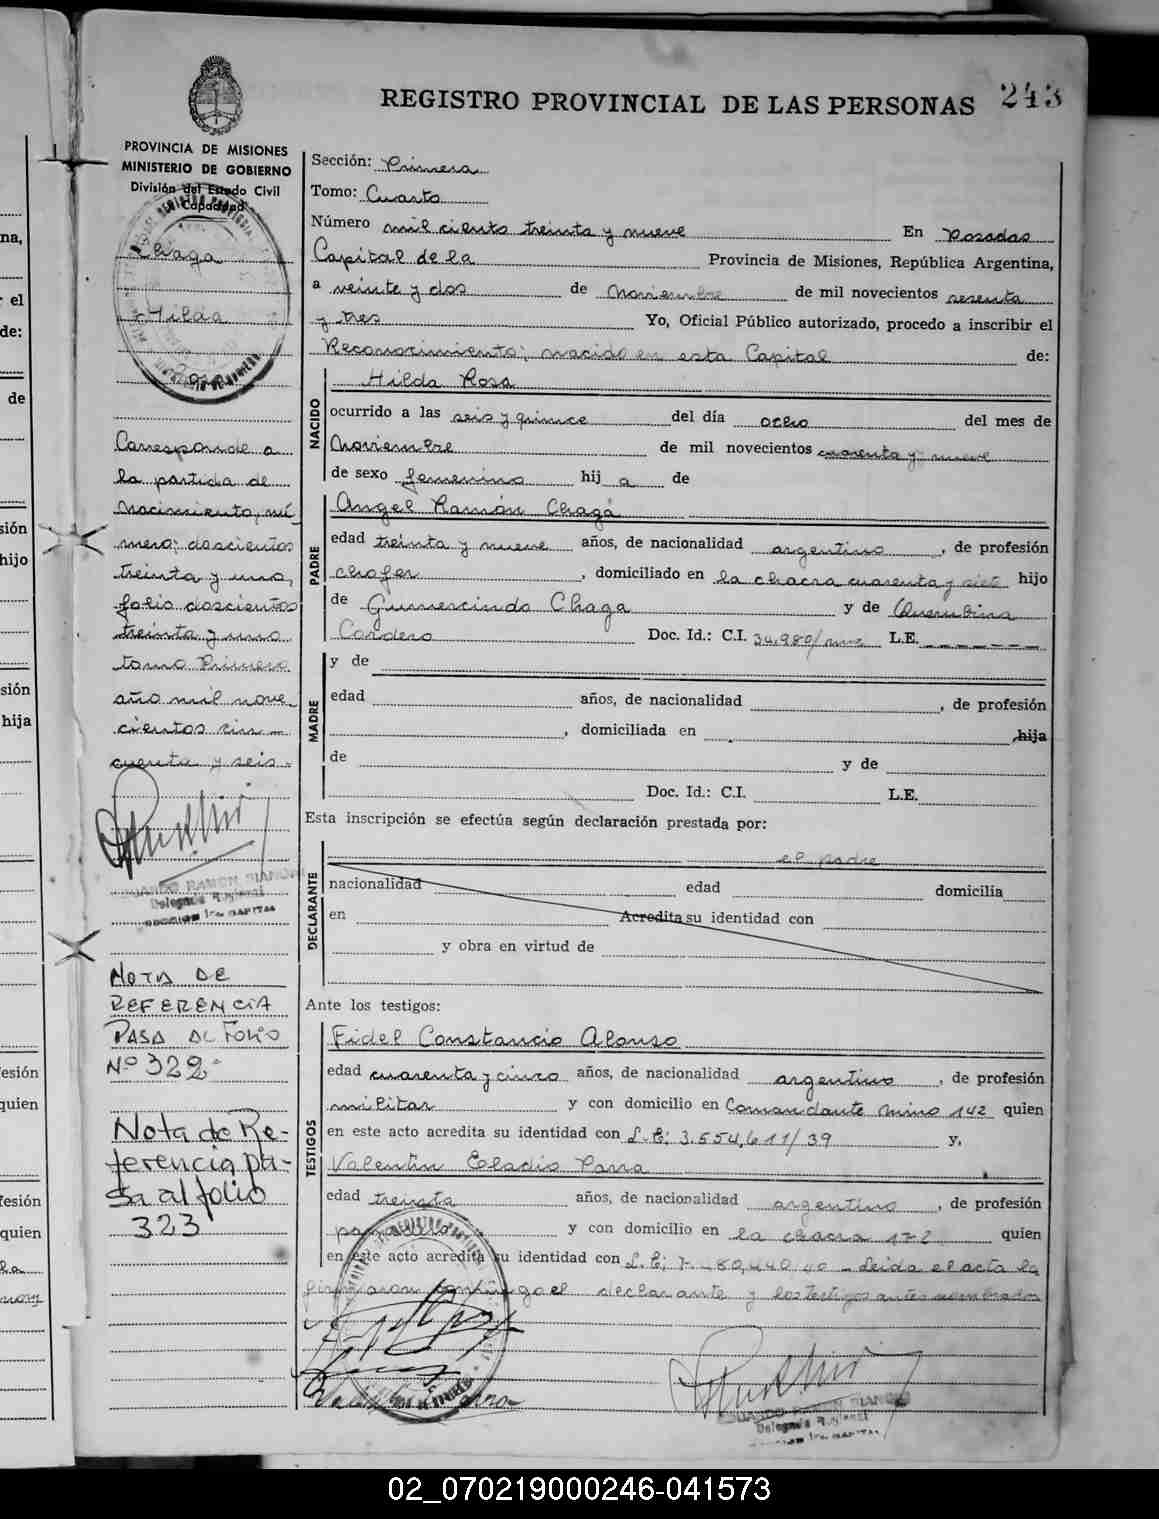 243
REGISTRO PROVINCIAL DE LAS PERSONAS
PROVINCIA DE MISIONES
MINISTERIO DE GOBIERNO
División del Estado Civil
y Capacidad
Chaga
Hilda
Rosa
Corresponde a
la partida de
nacimiento, nú
mero: doscientos
treinta y uno,
folio doscientos
treinta y uno
tomo Primero
año mil nove
cientos cin-
cuenta y seis.
EDUARDO RAMON
Delegado Regional
SECCION 1ra. CAPITAL
NOTA DE
REFERENCIA
PASA AL FOLIO
Nº 322
Nota de Re-
ferencia pa-
sa al folio
323
Sección: Primera
Tomo: Cuarto
Número mil ciento treinta y nueve En Posadas
Capital de la Provincia de Misiones, República Argentina,
a veinte y dos de Noviembre de mil novecientos sesenta
y tres Yo, Oficial Público autorizado, procedo a inscribir el
Reconocimiento; nacido en esta Capital de:
NACIDO
Hilda Rosa
ocurrido a las seis y quince del día ocho del mes de
Noviembre de mil novecientos cuarenta y nueve
de sexo femenino hij a de
PADRE
Angel Ramón Chaga
edad treinta y nueve años, de nacionalidad argentino, de profesión
chofer, domiciliado en la chacra cuarenta y siete hijo
de Gumercindo Chaga y de Querubina
Cordero Doc. Id.: C.I. 34.980/ L.E.
MADRE
y de
edad años, de nacionalidad , de profesión
, domiciliada en hija
de y de
Doc. Id.: C.I. L.E.
Esta inscripción se efectúa según declaración prestada por:
DECLARANTE
el padre
nacionalidad edad domicilia
en Acredita su identidad con
y obra en virtud de
Ante los testigos:
TESTIGOS
Fidel Constancio Alonso
edad cuarenta y cinco años, de nacionalidad argentino, de profesión
militar y con domicilio en Comandante Miño 142 quien
en este acto acredita su identidad con L.E; 3.554,611/39 y,
Valentín Eladio Parra
edad treinta años, de nacionalidad argentino, de profesión
y con domicilio en la chacra 172 quien
en este acto acredita su identidad con L.E; 7. Leída el acta la
firmaron conmigo el declarante y los testigos antes nombrados
EDUARDO RAMON
Delegado Regional
SECCION 1ra. CAPITAL
02_070219000246-041573